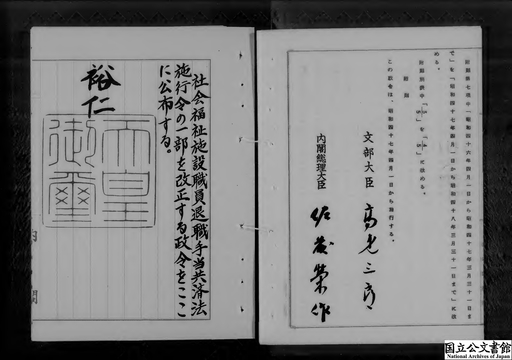 附則第七項中「昭和四十六年四月一日から昭和四十七年三月三十一日ま
で」を「昭和四十七年四月一日から昭和四十八年三月三十一日まで」に改
める。
附則
この政令は、昭和四十七年四月一日から施行する。
文部大臣 高見三郎
内閣総理大臣 佐藤榮作
社会福祉施設職員退職手当共済法
施行令の一部を改正する政令をここ
に公布する。
裕仁
天皇
御璽
内閣
国立公文書館
National Archives of Japan